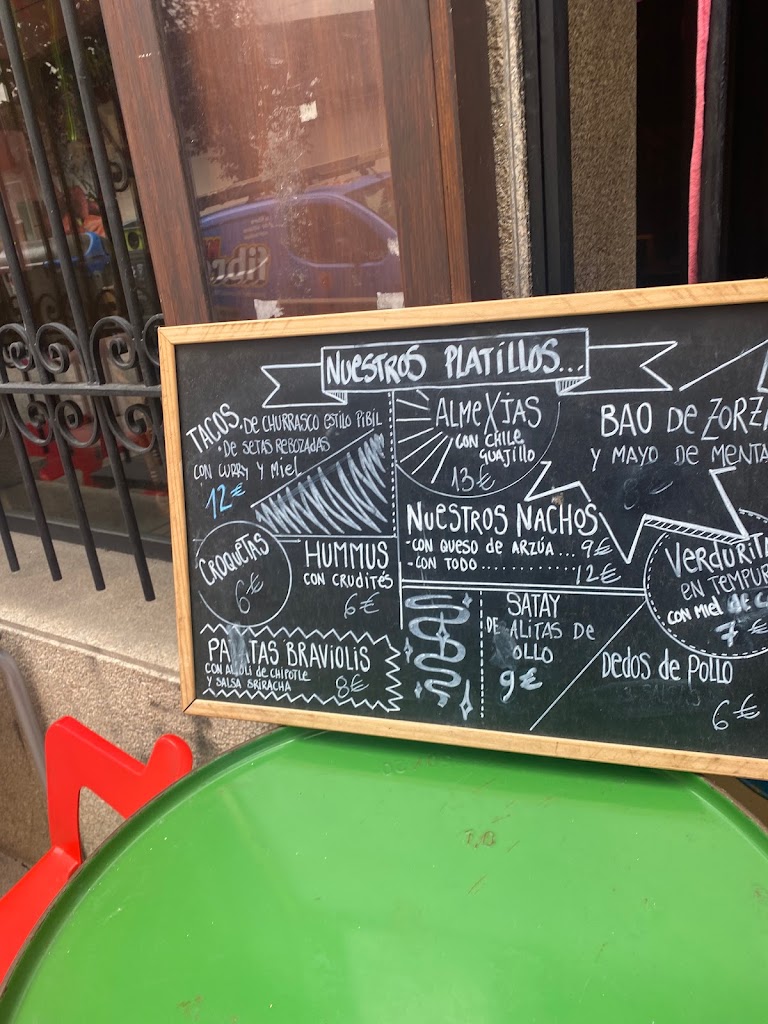 NUESTROS PLATILLOS...
TACOS. DE CHURRASCO ESTILO PIBIL
• DE SETAS REBOZADAS
CON CURRY Y MIEL
12€
ALMEXIAS
CON CHILE
GUAJILLO
13€
BAO DE
Y MAYO DE MENTA
NUESTROS NACHOS
-CON QUESO DE ARZÚA... 9€
-CON TODO.......... 12€
CROQUETAS
6€
HUMMUS
CON CRUDITÉS
6€
EN TEMPUR
CON MIEL DE
7€
SATAY
DE ALITAS DE
OLLO
9€
PA TAS BRAVIOLIS
CON DE CHIPOTLE
Y SALSA SRIRACHA
8€
DEDOS DE POLLO
6€